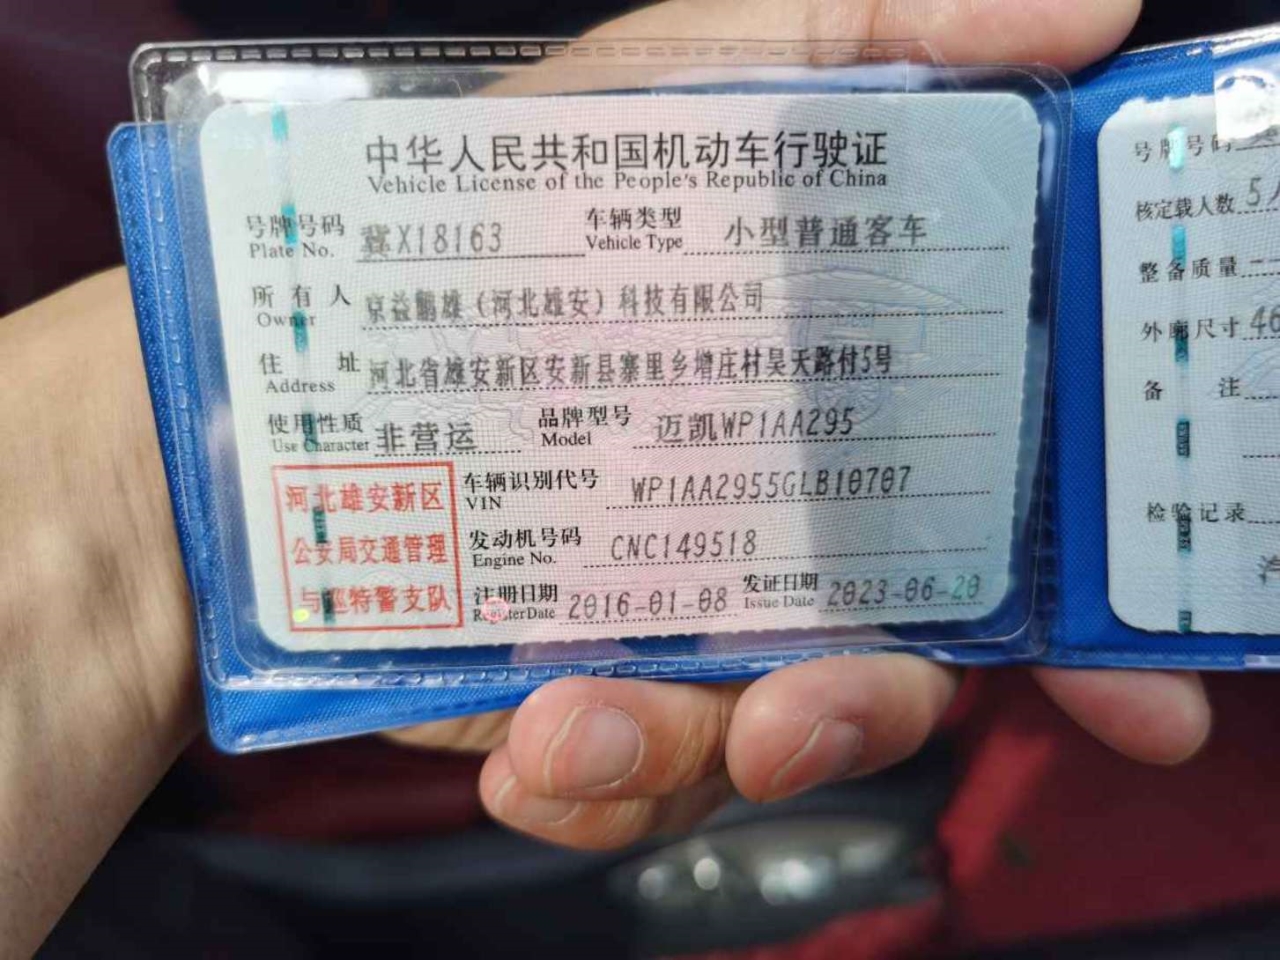 中华人民共和国机动车行驶证
Vehicle License of the People's Republic of China
号牌号码 冀X18163 车辆类型 小型普通客车
Plate No. Vehicle Type
所有人 京益鹏雄（河北雄安）科技有限公司
Owner
住址 河北省雄安新区安新县寨里乡增庄村昊天路付5号
Address
使用性质 非营运 品牌型号 迈凯WP1AA295
Use Character Model
河北雄安新区
公安局交通管理
与巡特警支队
车辆识别代号 WP1AA2955GLB10707
VIN
发动机号码 CNC149518
Engine No.
注册日期 2016-01-08 发证日期 2023-06-20
Register Date Issue Date
号牌号码
核定载人数 5
整备质量
外廓尺寸 46
备注
检验记录